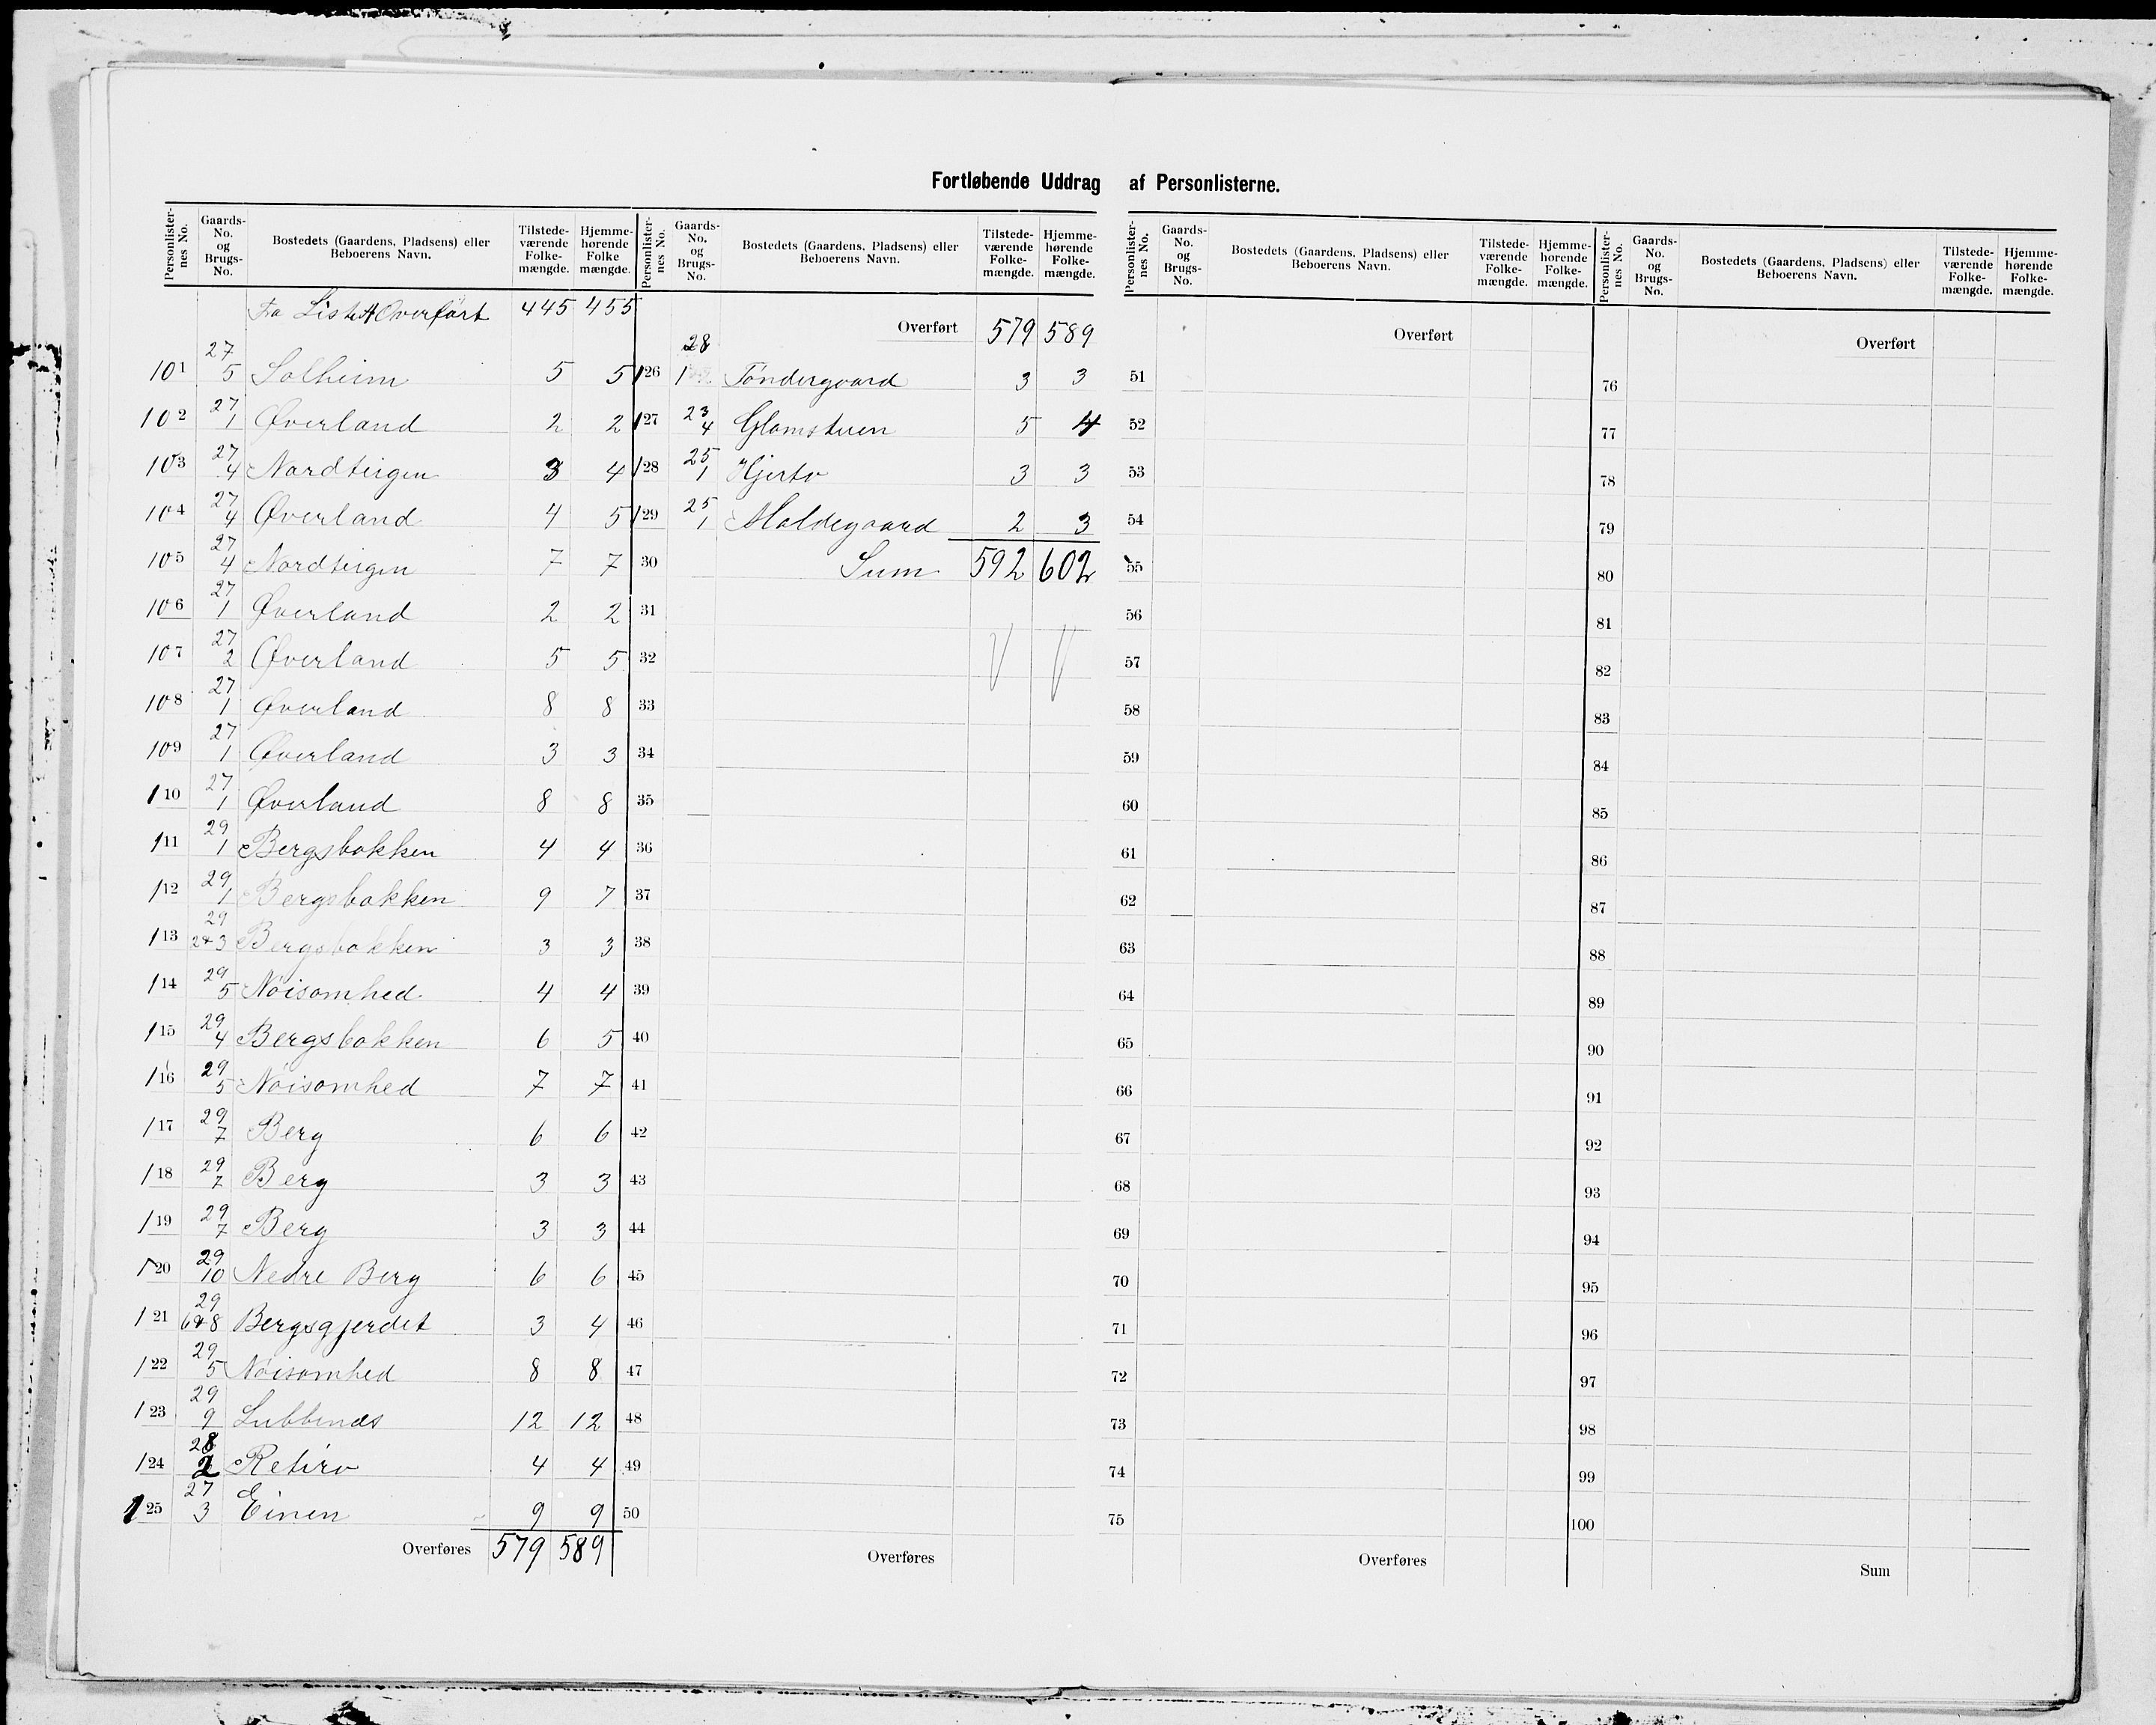 Fortløbende Uddrag af Personlisterne.
Personlisternes No. Gaards-No. og Brugs-No. Bostedets (Gaardens, Pladsens) eller Beboerens Navn. Tilstedeværende Folkemængde. Hjemmehørende Folkemængde.
Fra Liste A Overført 445 455
101 27 5 Solheim 5 5
102 27 1 Øverland 2 2
103 27 4 Nordteigen 3 4
104 27 4 Øverland 4 5
105 27 4 Nordteigen 7 7
106 27 1 Øverland 2 2
107 27 2 Øverland 5 5
108 27 1 Øverland 8 8
109 27 1 Øverland 3 3
110 27 1 Øverland 8 8
111 29 1 Bergsbakken 4 4
112 29 1 Bergsbakken 9 7
113 29 2&3 Bergsbakken 3 3
114 29 5 Nöisomhed 4 4
115 29 4 Bergsbakken 6 5
116 29 5 Nöisomhed 7 7
117 29 7 Berg 6 6
118 29 7 Berg 3 3
119 29 7 Berg 3 3
120 29 10 Nedre Berg 6 6
121 29 6&8 Bergsgjerdet 3 4
122 29 5 Nöisomhed 8 8
123 29 9 Lubbenæs 12 12
124 28 2 Retiro 4 4
125 27 3 Einen 9 9
Overføres 579 589
Personlisternes No. Gaards-No. og Brugs-No. Bostedets (Gaardens, Pladsens) eller Beboerens Navn. Tilstedeværende Folkemængde. Hjemmehørende Folkemængde.
Overført 579 589
126 28 1 Töndergaard 3 3
127 23 4 Glamstuen 5 4
128 25 1 Hjerto 3 3
129 25 1 Moldegaard 2 3
30 Sum 592 602
31
32
33
34
35
36
37
38
39
40
41
42
43
44
45
46
47
48
49
50
Overføres
Personlisternes No. Gaards-No. og Brugs-No. Bostedets (Gaardens, Pladsens) eller Beboerens Navn. Tilstedeværende Folkemængde. Hjemmehørende Folkemængde.
Overført
51
52
53
54
55
56
57
58
59
60
61
62
63
64
65
66
67
68
69
70
71
72
73
74
75
Overføres
Personlisternes No. Gaards-No. og Brugs-No. Bostedets (Gaardens, Pladsens) eller Beboerens Navn. Tilstedeværende Folkemængde. Hjemmehørende Folkemængde.
Overført
76
77
78
79
80
81
82
83
84
85
86
87
88
89
90
91
92
93
94
95
96
97
98
99
100
Sum